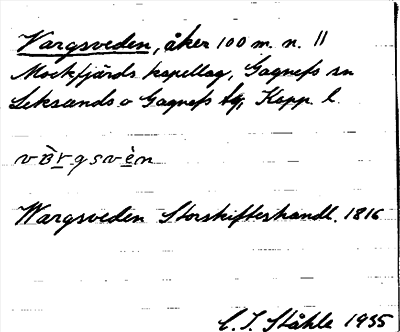 Vargsveden, åker 100 m. n. ||
Mockfjärds kapellag, Gagnefs sn
Leksands o Gagnefs tg, Kopp. l.
vàrgsvèn
Wargsveden Storskifteshandl. 1816
C. I. Ståhle 1935